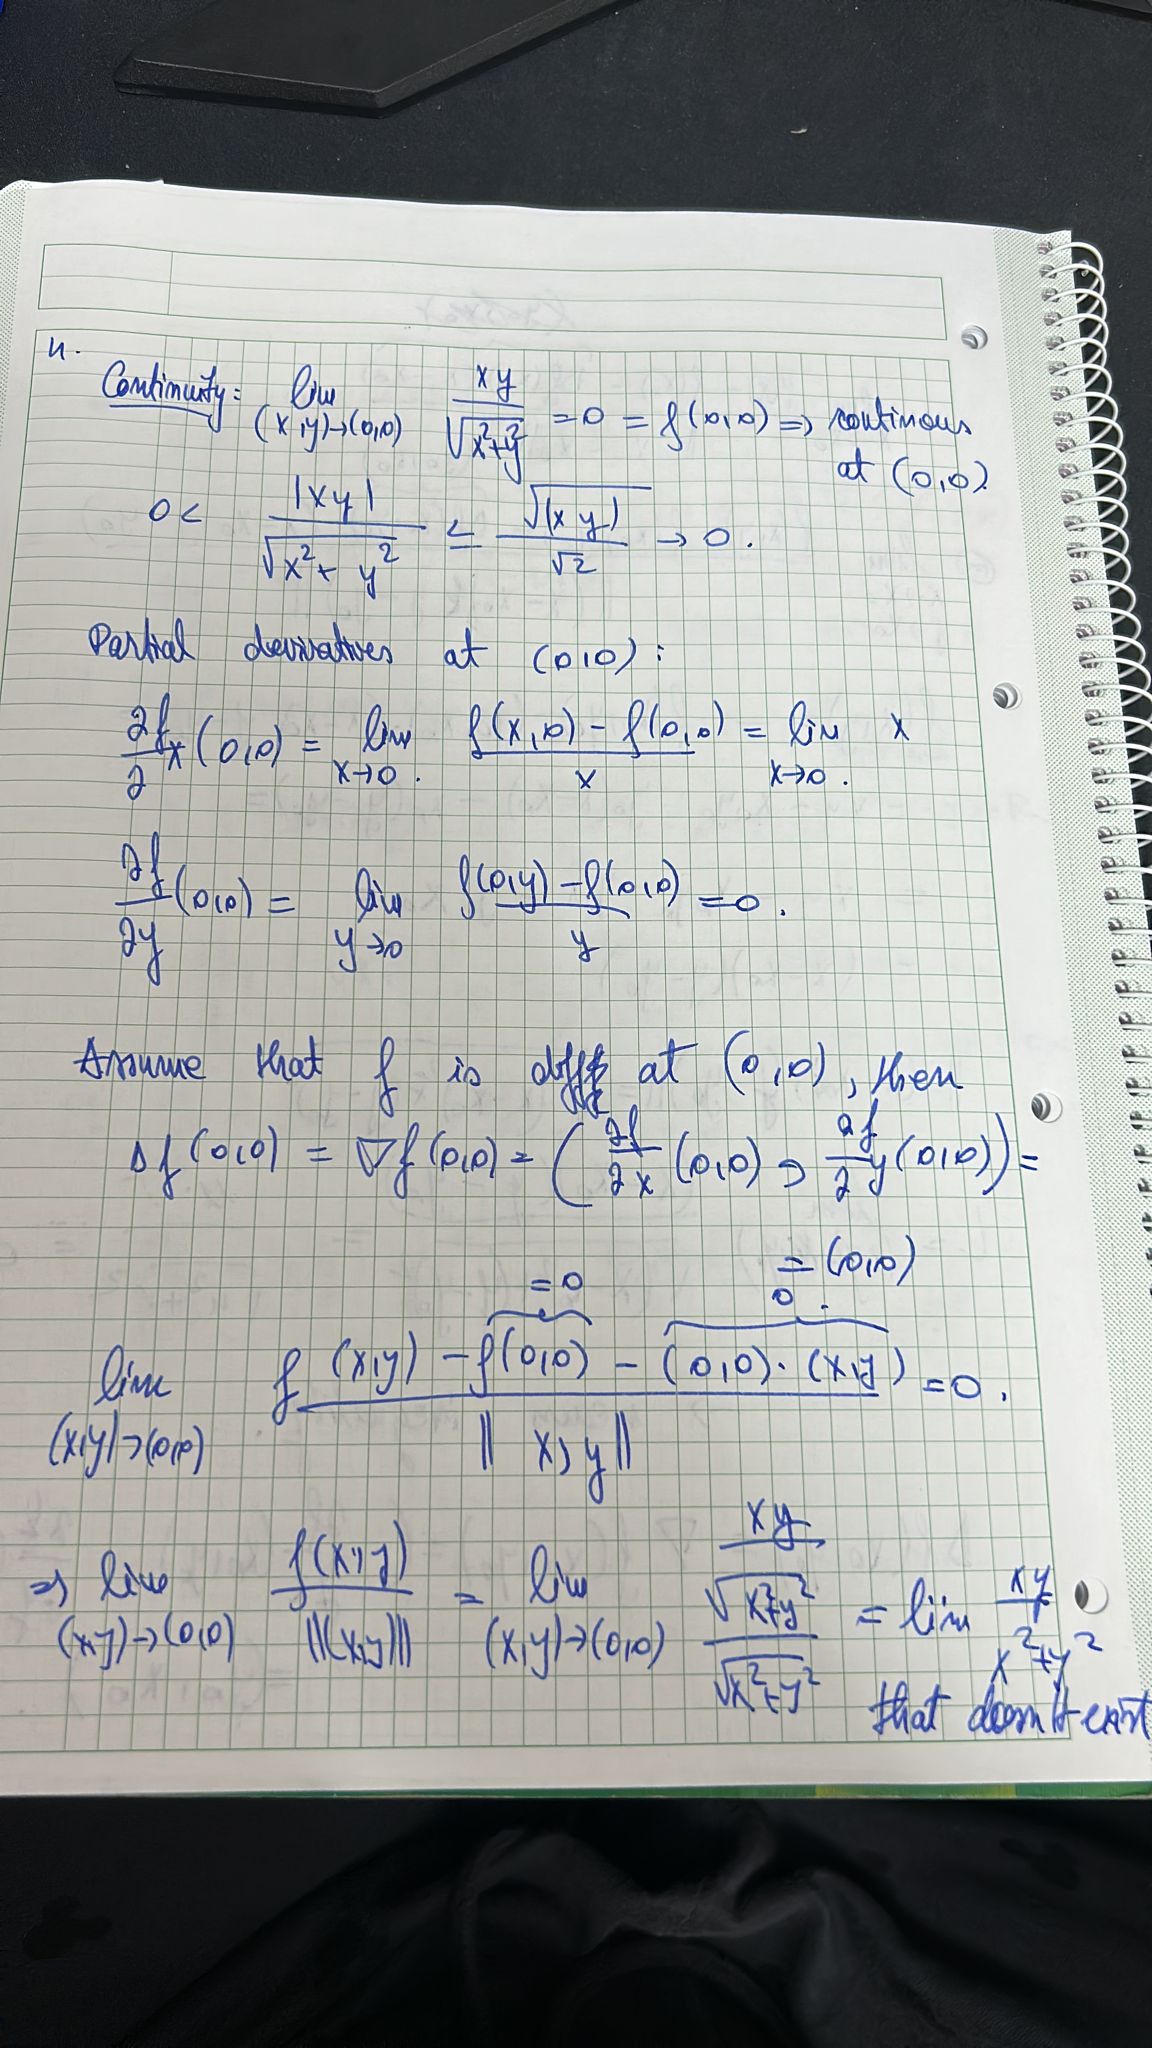 4.
Continuity: lim (x,y)→(0,0) xy/√(x²+y²) = 0 = f(0,0) ⇒ continous
at (0,0)
0 < |xy|/√(x²+y²) ≤ √(xy)/√2 → 0.
Partial derivatives at (0,0):
∂f/∂x (0,0) = lim x→0. (f(x,0) − f(0,0))/x = lim x→0. x
∂f/∂y (0,0) = lim y→0 (f(0,y) − f(0,0))/y = 0.
Assume that f is diff at (0,0), then
Δf(0,0) = ∇f(0,0) = (∂f/∂x (0,0), ∂f/∂y (0,0)) =
= (0,0)
= 0 0.
lim (x,y)→(0,0) (f(x,y) − f(0,0) − (0,0)·(x,y))/||x,y|| = 0.
⇒ lim (x,y)→(0,0) f(x,y)/||(x,y)|| = lim (x,y)→(0,0) (xy/√(x²+y²))/√(x²+y²) = lim xy/(x²+y²)
that doesn't exist